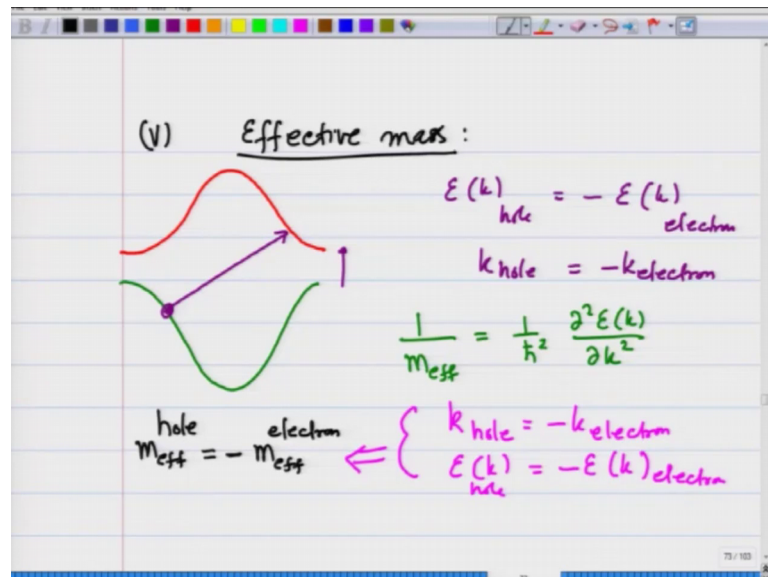 (V) Effective mass :
ε(k)hole = - ε(k)electron
k hole = -k electron
1/m eff = 1/ħ² ∂²ε(k)/∂k²
m eff hole = - m eff electron ⇐ { k hole = -k electron
ε(k)hole = -ε(k)electron
73 / 103